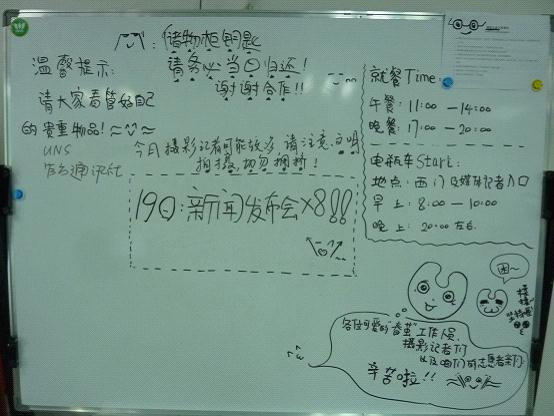 储物柜钥匙
请务必当日归还!
谢谢合作!!
温馨提示:
请大家看管好自己
的贵重物品!
UNS
今日摄影记者可能较多,请注意文明
拍摄,切勿拥挤!
19日:新闻发布会×8!!
就餐Time:
午餐:11:00—14:00
晚餐:17:00—20:00
电瓶车Start:
地点:西门及媒体记者入口
早上:8:00—10:00
晚上:20:00左右
困~
各位可爱的"香茧"工作人员、
摄影记者们
以及咱们的志愿者们
辛苦啦!!